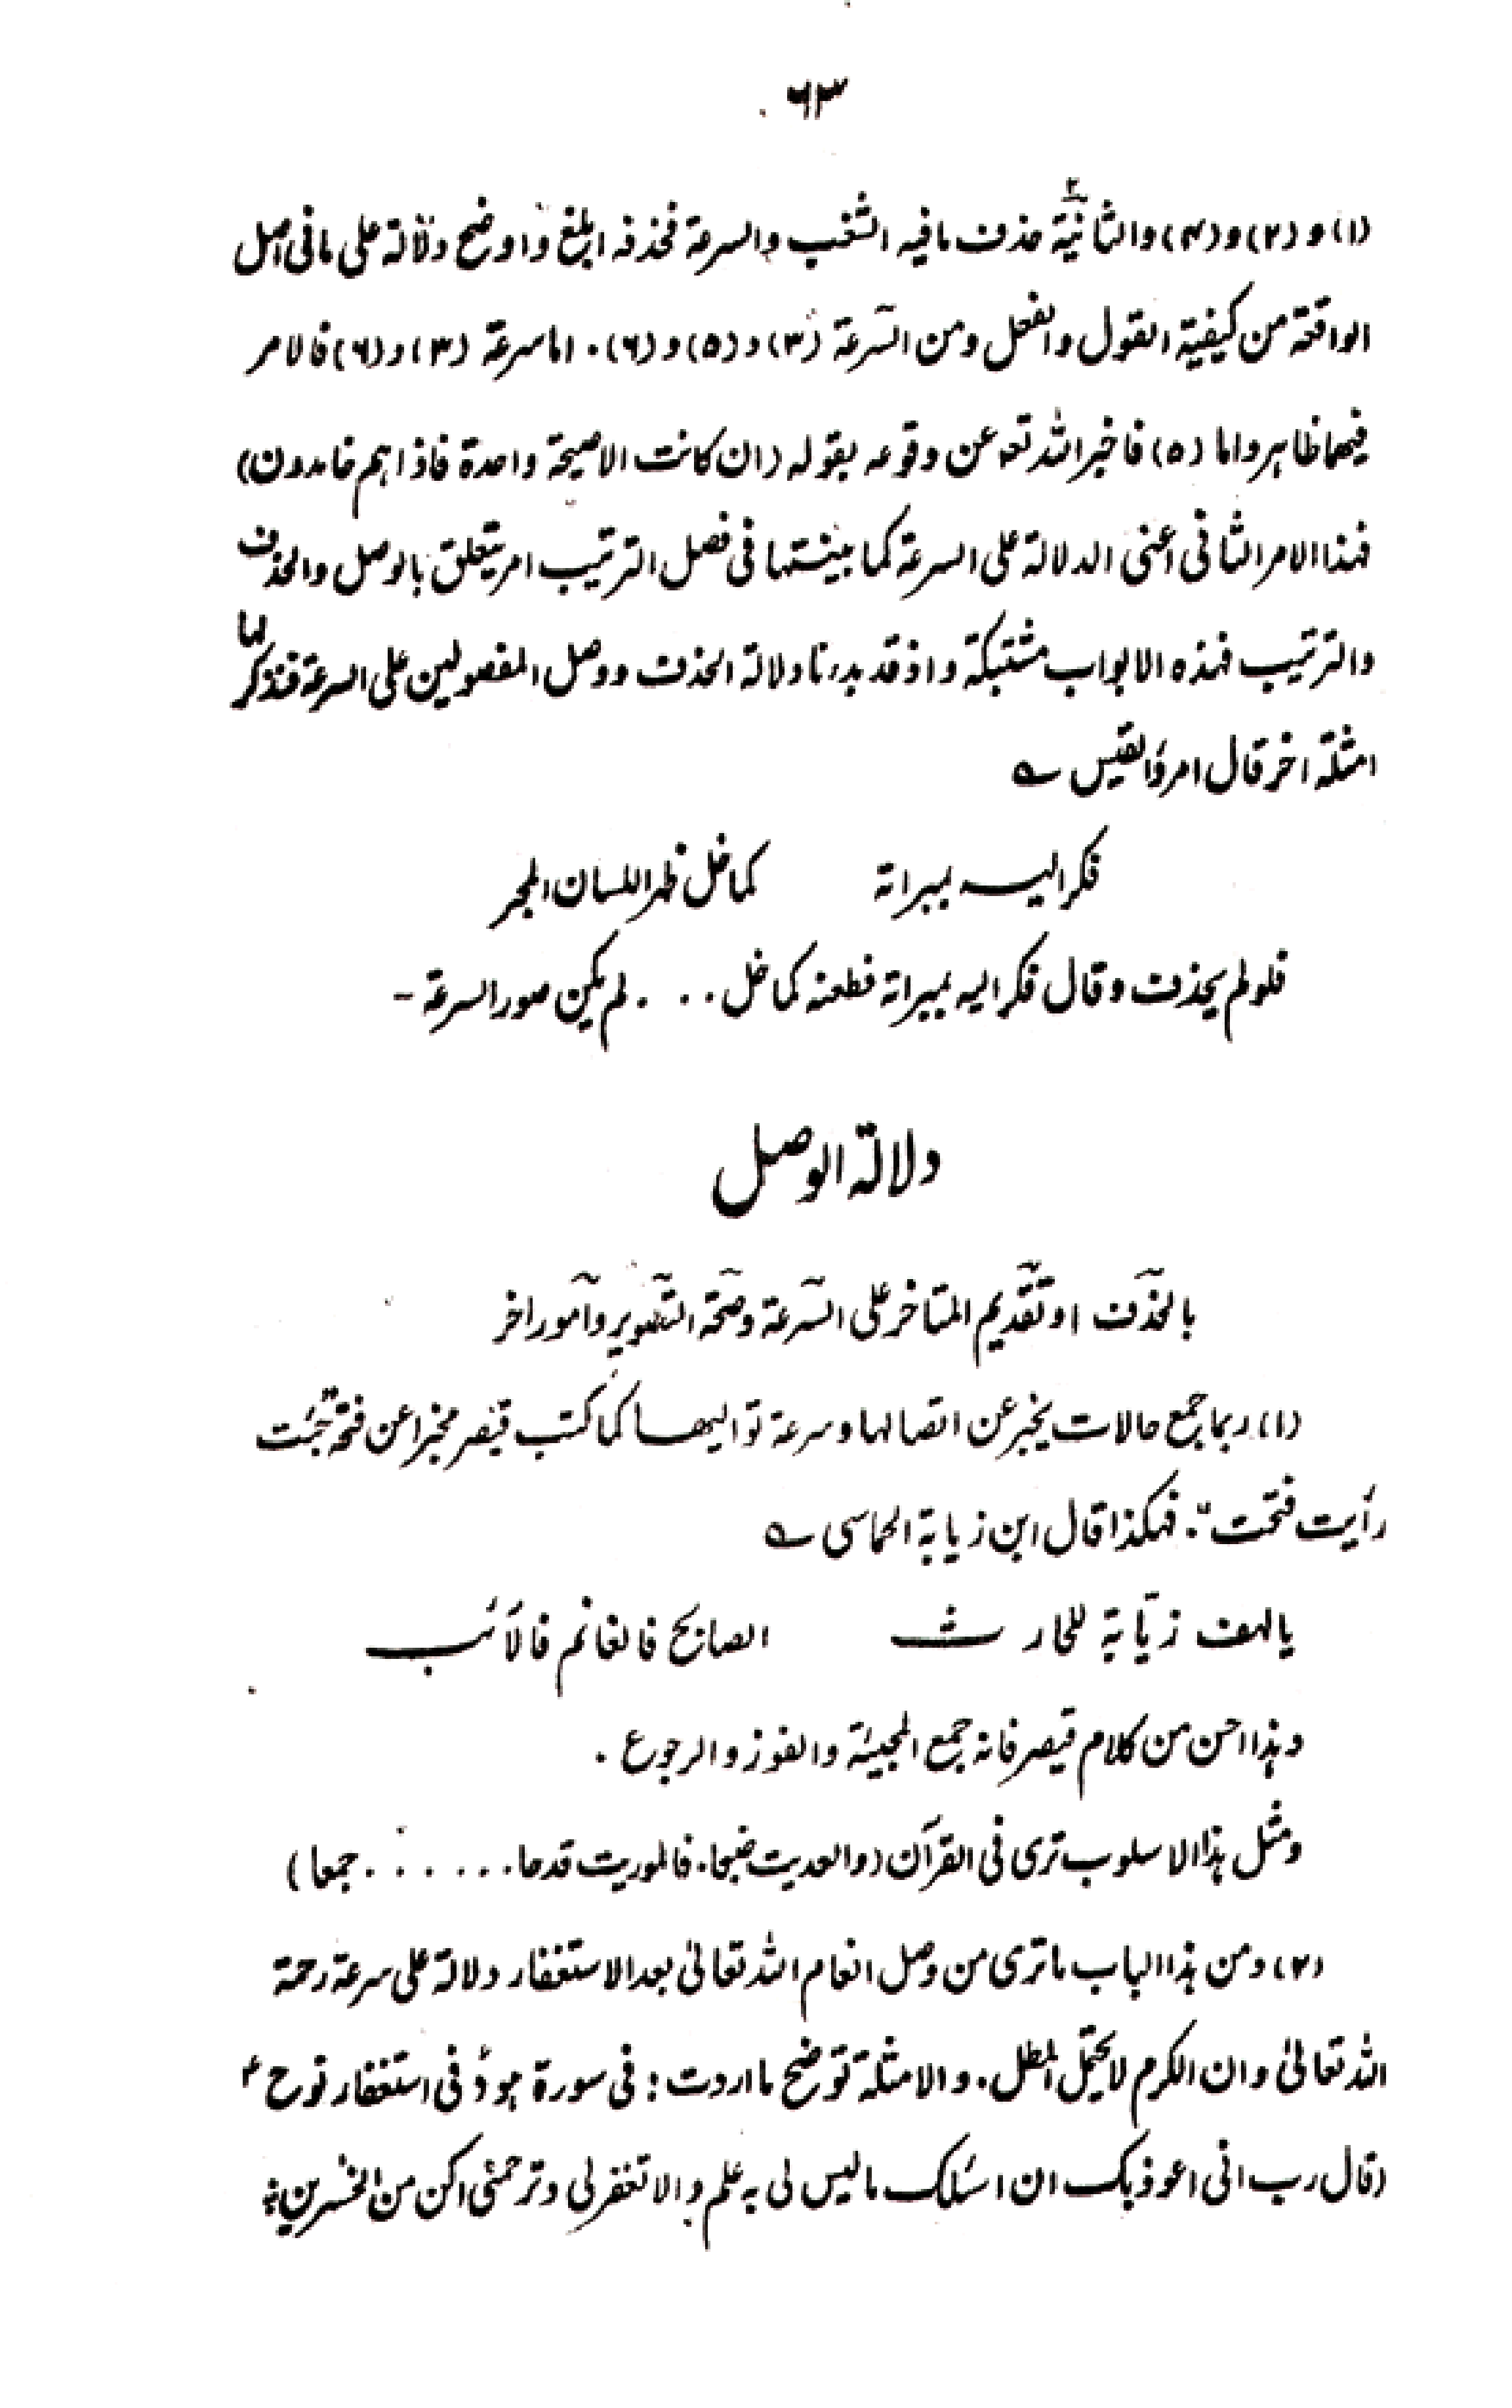 ٦٣
(١) و (٢) و (٤) والثانية حذف ما فيه الشغب والسرعة فحذفه ابلغ واوضح دلالة على ما فى اصل
الواقعة من كيفية القول والفعل ومن السرعة (٣) و (٥) و (٦). اما سرعة (٣) و (٦) فالامر
فيهما ظاهر واما (٥) فاخبر الله تعـ عن وقوعه بقوله (ان كانت الا صيحة واحدة فاذا هم خامدون)
فهذا الامر الثانى اعنى الدلالة على السرعة كما بينتها فى فصل الترتيب امر يتعلق بالوصل والحذف
والترتيب فهذه الابواب مشتبكة واذ قد بدرنا دلالة الحذف ووصل المفصولين على السرعة فنذكر لها
امثلة اخر قال امرؤ القيس ؎
فكر اليه بمبراته كما خل ظهر اللسان المجر
فلو لم يحذف وقال فكر اليه بمبراته فطعنه كما خل . . . لم يكن صور السرعة -
دلالة الوصل
بالحذف او تقديم المتاخر على السرعة وصحة التصوير وامور اخر
(١) ربما جمع حالات يخبر عن اتصالها وسرعة تواليها كما كتب قيصر مخبرا عن فتحه "جئت
رأيت فتحت". فهكذا قال ابن زيابة الحماسى ؎
يا لهف زيّابة للحارث الصابح فالغانم فالآئب
وهذا احسن من كلام قيصر فانه جمع المجيئة والفوز والرجوع .
ومثل هذا الاسلوب ترى فى القرآن (والعديت ضبحا. فالموريت قدحا. . . . . . . جمعا)
(٢) ومن هذا الباب ما ترى من وصل انعام الله تعالىٰ بعد الاستغفار دلالة على سرعة رحمة
الله تعالىٰ وان الكرم لا يحتمل المطل. والامثلة توضح ما اردت : فى سورة هود فى استغفار نوح ؑ
(قال رب انى اعوذ بك ان اسئلك ما ليس لى به علم والا تغفر لى وترحمنى اكن من الخٰسرين ؞